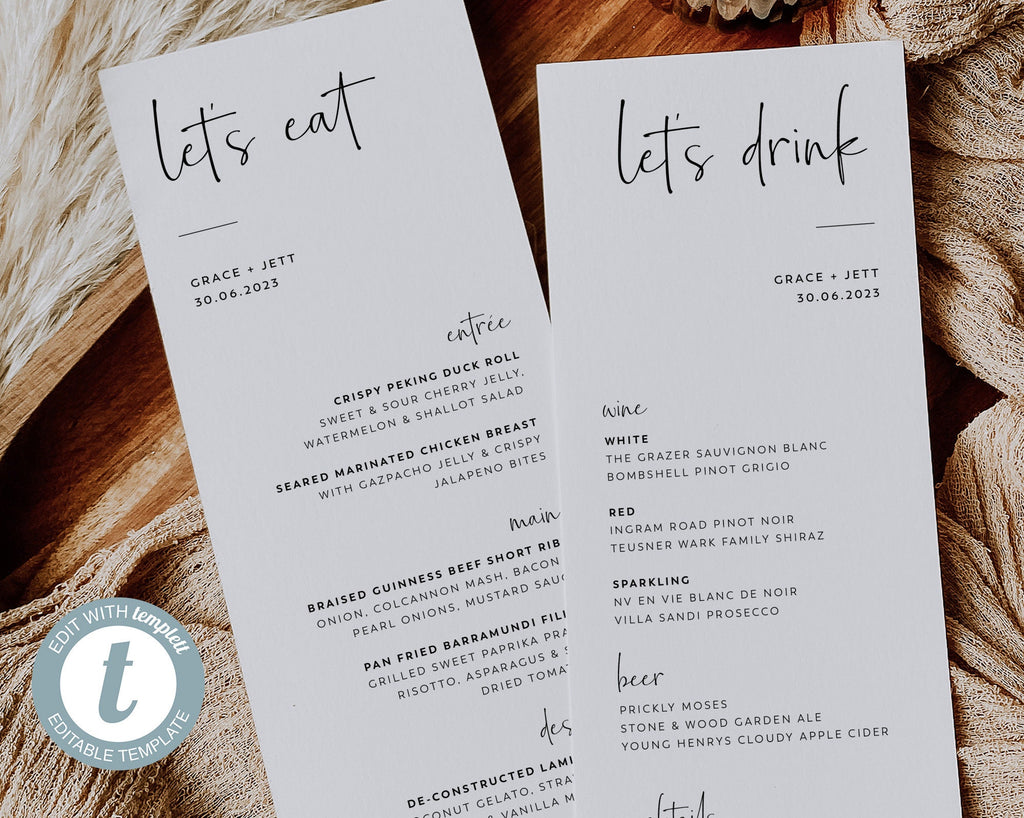 let's eat
GRACE + JETT
30.06.2023
entrée
CRISPY PEKING DUCK ROLL
SWEET & SOUR CHERRY JELLY,
WATERMELON & SHALLOT SALAD
SEARED MARINATED CHICKEN BREAST
WITH GAZPACHO JELLY & CRISPY
JALAPENO BITES
main
BRAISED GUINNESS BEEF SHORT RIB
ONION, COLCANNON MASH, BACON
PEARL ONIONS, MUSTARD
PAN FRIED BARRAMUNDI
GRILLED SWEET PAPRIKA
RISOTTO, ASPARAGUS &
DRIED
DE-CONSTRUCTED
GELATO,
& VANILLA
let's drink
GRACE + JETT
30.06.2023
wine
WHITE
THE GRAZER SAUVIGNON BLANC
BOMBSHELL PINOT GRIGIO
RED
INGRAM ROAD PINOT NOIR
TEUSNER WARK FAMILY SHIRAZ
SPARKLING
NV EN VIE BLANC DE NOIR
VILLA SANDI PROSECCO
beer
PRICKLY MOSES
STONE & WOOD GARDEN ALE
YOUNG HENRYS CLOUDY APPLE CIDER
EDIT WITH templett
t
EDITABLE TEMPLATE